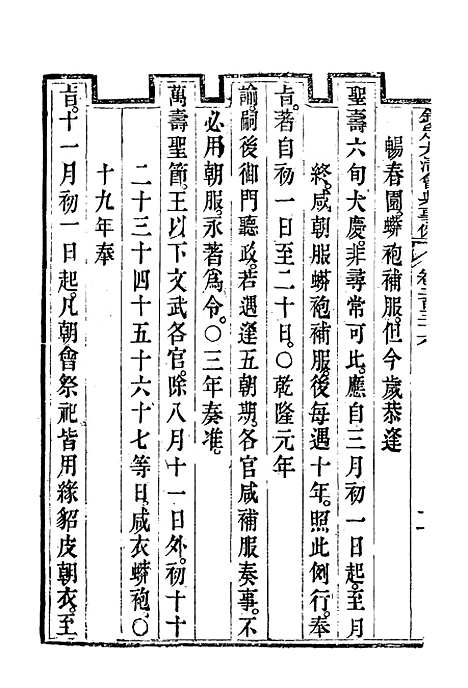 欽定大清會典事例 卷三百二十六
暢春園。蟒袍補服。但今歲恭逢
聖壽六旬大慶。非尋常可比。應自三月初一日起。至月
終。咸朝服蟒袍補服。後每遇十年。照此例行。奉
旨。著自初一日至二十日。○乾隆元年
諭。嗣後御門聽政。若遇逢五朝期。各官咸補服奏事。不
必用朝服。永著爲令。○三年奏准。
萬壽聖節。王以下文武各官。除八月十一日外。初十十
二十三十四十五十六十七等日。咸衣蟒袍。○
十九年奉
旨。十一月初一日起。凡朝會祭祀皆用緣貂皮朝衣。至